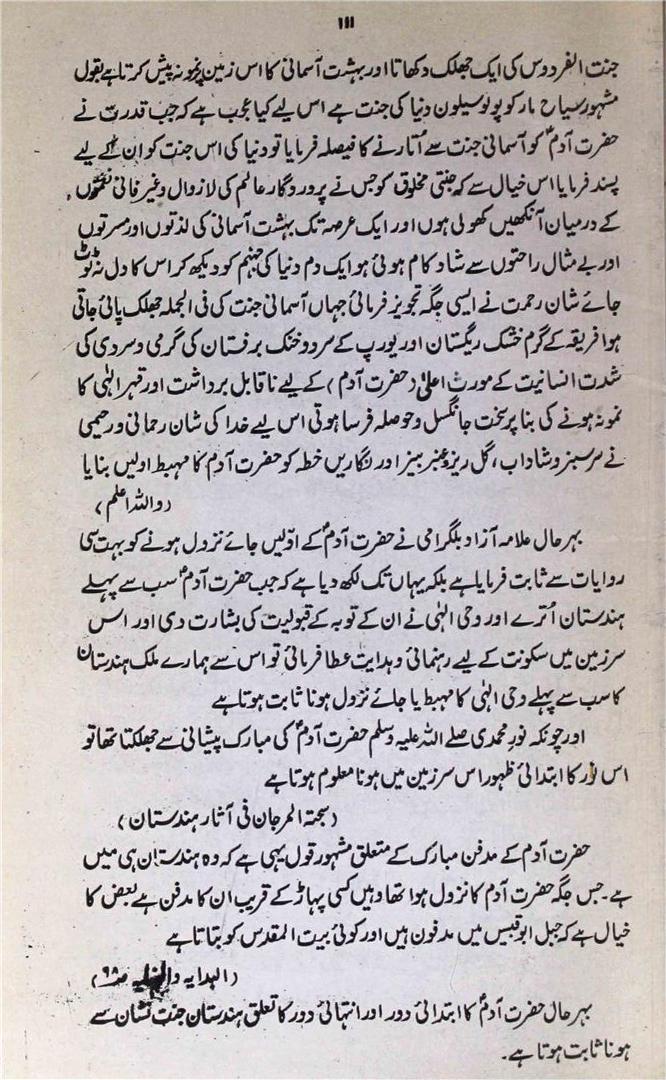 ۱۱۱
جنت الفردوس کی ایک جھلک دکھاتا اور بہشت آسمانی کا اس زمین پر نمونہ پیش کرتا ہے بقول
مشہور سیاح مارکوپولو سیلون دنیا کی جنت ہے اس لیے کیا عجب ہے کہ جب قدرت نے
حضرت آدمؑ کو آسمانی جنت سے اُتارنے کا فیصلہ فرمایا تو دنیا کی اس جنت کو ان کے لیے
پسند فرمایا اس خیال سے کہ جنتی مخلوق کو جس نے پروردگار عالم کی لازوال وغیر فانی نعمتوں
کے درمیان آنکھیں کھولی ہوں اور ایک عرصہ تک بہشت آسمانی کی لذتوں اور مسرتوں
اور بے مثال راحتوں سے شادکام ہوئی ہو ایک دم دنیا کی جہنم کو دیکھ کر اس کا دل نہ ٹوٹ
جائے شان رحمت نے ایسی جگہ تجویز فرمائی جہاں آسمانی جنت کی فی الجملہ جھلک پائی جاتی
ہو افریقہ کے گرم خشک ریگستان اور یورپ کے سرد و خنک برفستان کی گرمی و سردی کی
شدت انسانیت کے مورث اعلیٰ (حضرت آدم) کے لیے ناقابل برداشت اور قہر الٰہی کا
نمونہ ہونے کی بنا پر سخت جانگسل و حوصلہ فرسا ہوتی اس لیے خدا کی شان رحمانی و رحیمی
نے سرسبز و شاداب، گل ریز و عنبر بیز اور نگاریں خطہ کو حضرت آدم کا مہبط اولیں بنایا
(واللہ اعلم)
بہر حال علامہ آزاد بلگرامی نے حضرت آدمؑ کے اوّلیں جائے نزول ہونے کو بہت سی
روایات سے ثابت فرمایا ہے بلکہ یہاں تک لکھ دیا ہے کہ جب حضرت آدمؑ سب سے پہلے
ہندستان اُترے اور وحی الٰہی نے ان کے توبہ کے قبولیت کی بشارت دی اور اس
سرزمین میں سکونت کے لیے رہنمائی و ہدایت عطا فرمائی تو اس سے ہمارے ملک ہندستان
کا سب سے پہلے وحی الٰہی کا مہبط یا جائے نزول ہونا ثابت ہوتا ہے
اور چونکہ نور محمدی صلے اللہ علیہ وسلم حضرت آدمؑ کی مبارک پیشانی سے جھلکتا تھا تو
اس نور کا ابتدائی ظہور اس سرزمین میں ہونا معلوم ہوتا ہے
(سبحتہ المرجان فی آثار ہندستان)
حضرت آدم کے مدفن مبارک کے متعلق مشہور قول یہی ہے کہ وہ ہندستان ہی میں
ہے۔ جس جگہ حضرت آدم کا نزول ہوا تھا وہیں کسی پہاڑ کے قریب ان کا مدفن ہے بعض کا
خیال ہے کہ جبل ابوقبیس میں مدفون ہیں اور کوئی بیت المقدس کو بتاتا ہے
(البدایہ ص۹۸)
بہر حال حضرت آدمؑ کا ابتدائی دور اور انتہائی دور کا تعلق ہندستان جنت نشان سے
ہونا ثابت ہوتا ہے۔